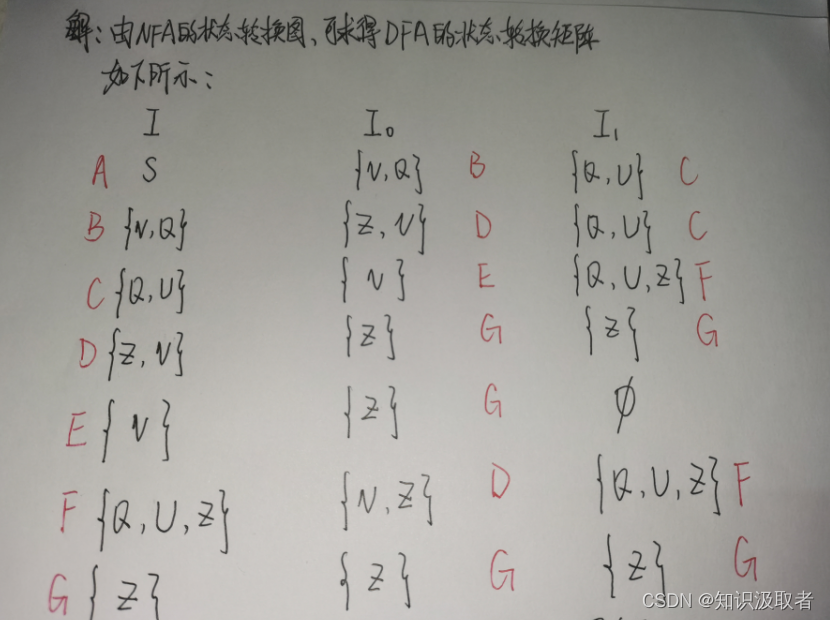 解：由NFA的状态转换图、可求得DFA的状态转换矩阵
如下所示：
I I₀ I₁
A S {N,Q} B {Q,U} C
B {N,Q} {Z,N} D {Q,U} C
C {Q,U} {N} E {Q,U,Z} F
D {Z,N} {Z} G {Z} G
E {N} {Z} G ∅
F {Q,U,Z} {N,Z} D {Q,U,Z} F
G {Z} {Z} G {Z} G
CSDN @知识汲取者